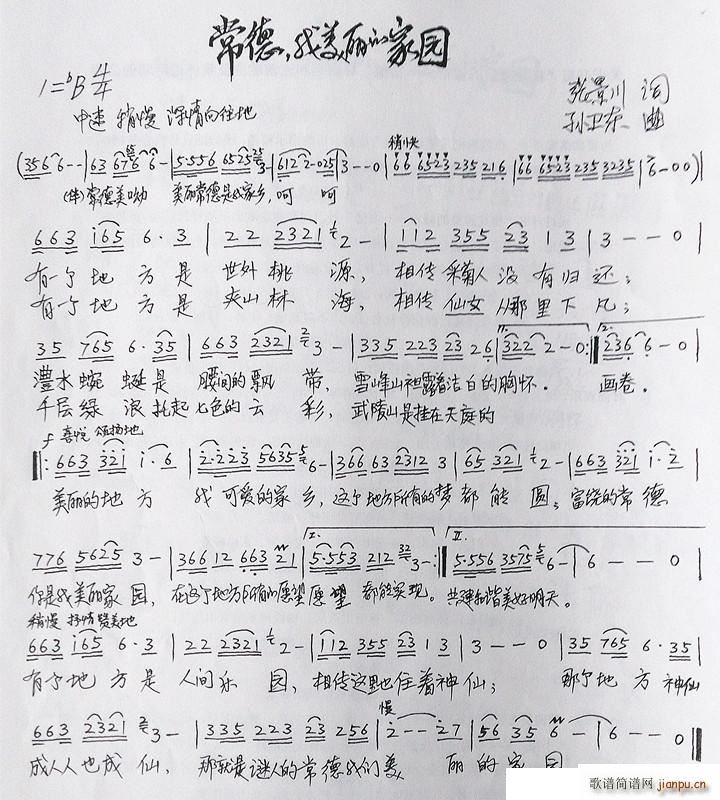 常德,我美丽的家园
1=♭B 4/4
张景川 词
中速 稍慢 深情向往地
孙卫东 曲
稍快
(356 6 - - | 63 676 6 - | 5·556 6525 3 - | 612 2 - 025 | 3 - - 0 | 66 6523 235 216 | 66 6523 235 3235 | 6 - 00)
(伴)常德美呦 美丽常德是我家乡,呵 呵
663 i65 6·3 | 22 2321 2 - | 112 355 23 13 | 3 - - 0 |
有个地 方是 世外桃 源, 相传 采菊人 没有归还;
有个地 方是 夹山林 海, 相传 仙女 从那里下凡;
1. 2.
35 765 6·35 | 663 2321 3 - | 335 223 23 26 | 322 2 - 0 :| 236 6 - 0 |
澧水蜿 蜒是 腰间的飘 带, 雪峰山袒露着洁白的胸怀. 画卷.
千层绿 浪托起七色的云 彩, 武陵山是挂在天庭的
f 喜悦 颂扬地
|: 663 321 i·6 | 2·223 5635 6 - | 366 63 2312 3 | 65 321 2 - | 663 321 i·2 |
美丽的地 方 我可爱的家 乡,这个地方所有的梦都能 圆;富饶的常德
I. II.
776 5625 3 - | 366 12 663 21 | 5·553 212 3 - :| 5·556 3575 6 - | 6 - - 0 |
你是我美丽家 园, 在这个地方所有的愿望愿望 都能实现。共建和谐美好明天。
稍慢 抒情赞美地
663 i65 6·3 | 22 2321 2 - | 112 355 23 13 | 3 - - 0 | 35 765 6·35 |
有个地 方是 人间乐 园, 相传这里也住着神仙; 那个地 方 神仙
慢
663 2321 3 - | 335 223 23 256 | 2 - - 27 | 56 35 6 - | 6 - - 0 ‖
成人人也成 仙, 那就是迷人的常德我们美 丽的家 园
歌谱简谱网
jianpu.cn